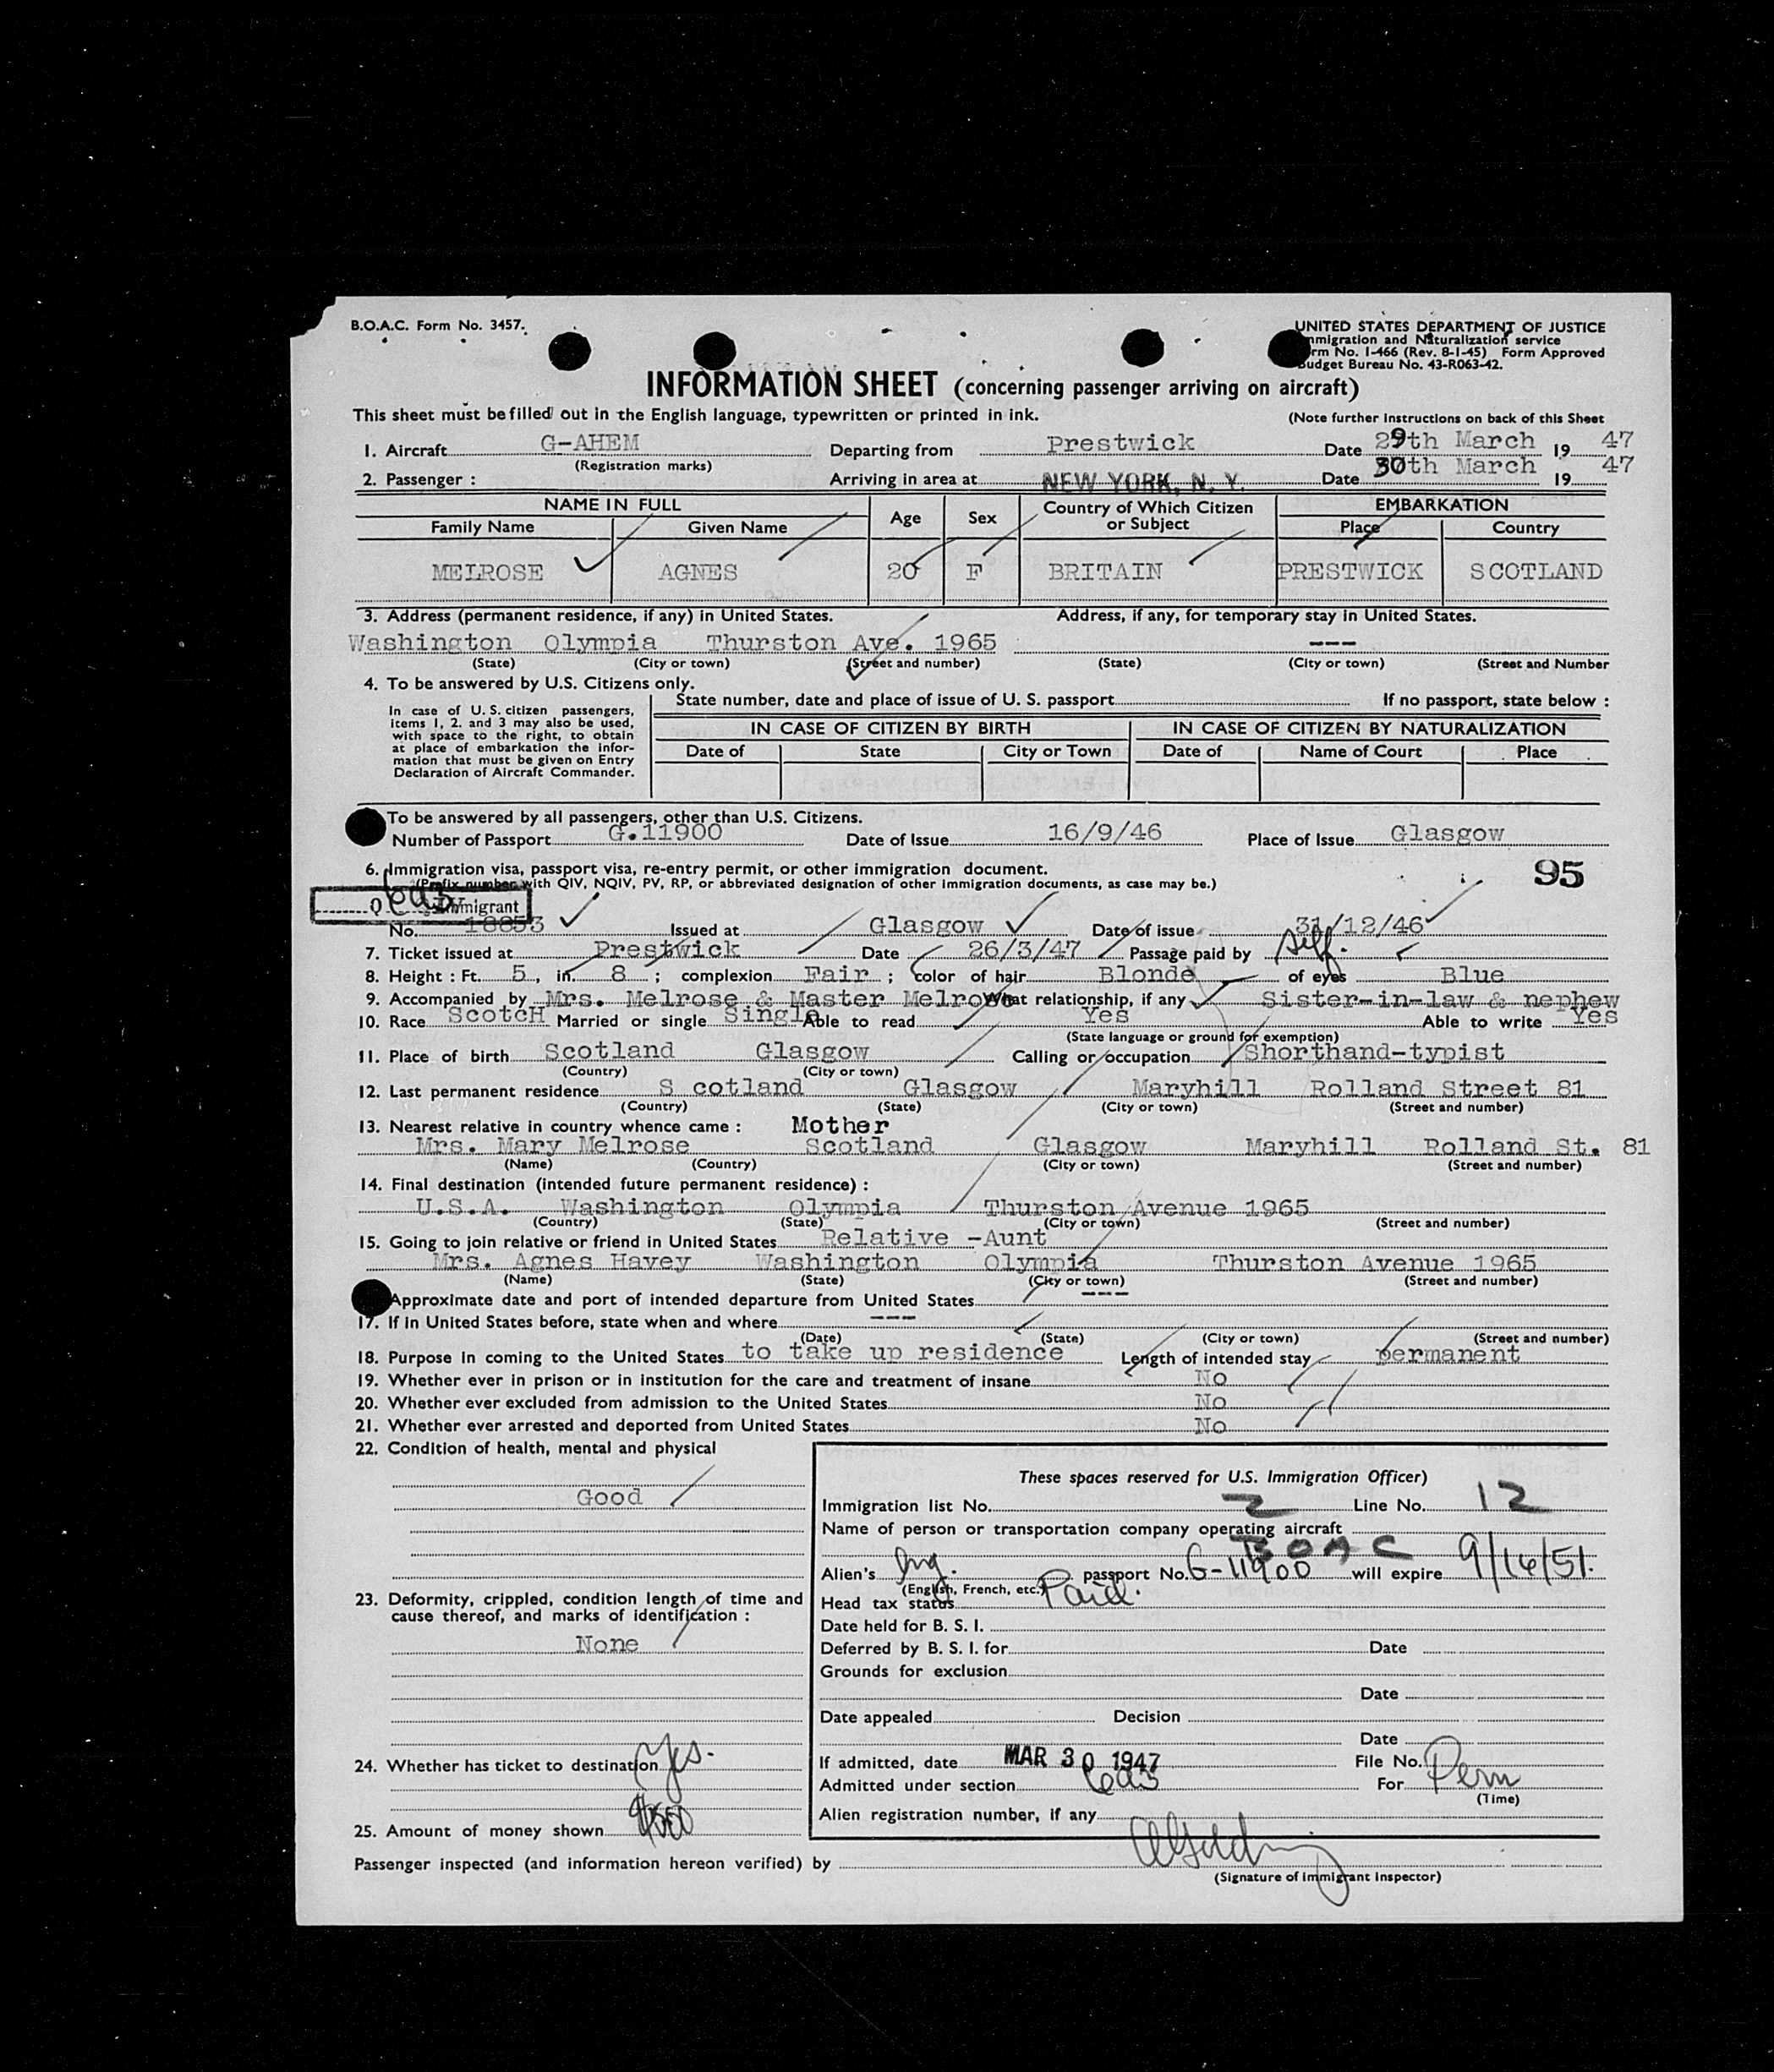 B.O.A.C. Form No. 3457.
UNITED STATES DEPARTMENT OF JUSTICE
mmigration and Naturalization service
rm No. I-466 (Rev. 8-1-45) Form Approved
udget Bureau No. 43-R063-42.
INFORMATION SHEET (concerning passenger arriving on aircraft)
This sheet must be filled out in the English language, typewritten or printed in ink.
(Note further Instructions on back of this Sheet
1. Aircraft G-AHEM Departing from Prestwick Date 29th March 19 47
(Registration marks)
2. Passenger : Arriving in area at NEW YORK, N. Y. Date 30th March 19 47
NAME IN FULL Age Sex Country of Which Citizen or Subject EMBARKATION
Family Name Given Name Place Country
MELROSE AGNES 20 F BRITAIN PRESTWICK SCOTLAND
3. Address (permanent residence, if any) in United States. Address, if any, for temporary stay in United States.
Washington Olympia Thurston Ave. 1965 ---
(State) (City or town) (Street and number) (State) (City or town) (Street and Number
4. To be answered by U.S. Citizens only.
State number, date and place of issue of U. S. passport If no passport, state below :
In case of U. S. citizen passengers,
items 1, 2. and 3 may also be used,
with space to the right, to obtain
at place of embarkation the infor-
mation that must be given on Entry
Declaration of Aircraft Commander.
IN CASE OF CITIZEN BY BIRTH IN CASE OF CITIZEN BY NATURALIZATION
Date of State City or Town Date of Name of Court Place
To be answered by all passengers, other than U.S. Citizens.
Number of Passport G.11900 Date of Issue 16/9/46 Place of Issue Glasgow
6. Immigration visa, passport visa, re-entry permit, or other immigration document.
(Prefix number with QIV, NQIV, PV, RP, or abbreviated designation of other immigration documents, as case may be.)
95
Q Immigrant
No. 18853 Issued at Glasgow Date of issue 31/12/46
7. Ticket issued at Prestwick Date 26/3/47 Passage paid by self.
8. Height : Ft. 5, in. 8 ; complexion Fair ; color of hair Blonde of eyes Blue
9. Accompanied by Mrs. Melrose & Master Melrose What relationship, if any Sister-in-law & nephew
10. Race ScotcH Married or single Single Able to read Yes Able to write Yes
(State language or ground for exemption)
11. Place of birth Scotland Glasgow Calling or occupation Shorthand-typist
(Country) (City or town)
12. Last permanent residence S cotland Glasgow Maryhill Rolland Street 81
(Country) (State) (City or town) (Street and number)
13. Nearest relative in country whence came : Mother
Mrs. Mary Melrose Scotland Glasgow Maryhill Rolland St. 81
(Name) (Country) (City or town) (Street and number)
14. Final destination (intended future permanent residence) :
U.S.A. Washington Olympia Thurston Avenue 1965
(Country) (State) (City or town) (Street and number)
15. Going to join relative or friend in United States Relative -Aunt
Mrs. Agnes Havey Washington Olympia Thurston Avenue 1965
(Name) (State) (City or town) (Street and number)
Approximate date and port of intended departure from United States ---
17. If in United States before, state when and where ---
(Date) (State) (City or town) (Street and number)
18. Purpose in coming to the United States to take up residence Length of intended stay permanent
19. Whether ever in prison or in institution for the care and treatment of insane No
20. Whether ever excluded from admission to the United States No
21. Whether ever arrested and deported from United States No
22. Condition of health, mental and physical
Good
23. Deformity, crippled, condition length of time and
cause thereof, and marks of identification :
None
24. Whether has ticket to destination Yes.
25. Amount of money shown
These spaces reserved for U.S. Immigration Officer)
Immigration list No. 2 Line No. 12
Name of person or transportation company operating aircraft
BOAC
Alien's Eng. passport No. G-11900 will expire 9/16/51.
(English, French, etc.)
Head tax status Paid.
Date held for B. S. I.
Deferred by B. S. I. for Date
Grounds for exclusion
Date
Date appealed Decision
Date
If admitted, date MAR 30 1947 File No.
Admitted under section 6a3 For Perm
(Time)
Alien registration number, if any
Passenger inspected (and information hereon verified) by
(Signature of Immigrant Inspector)